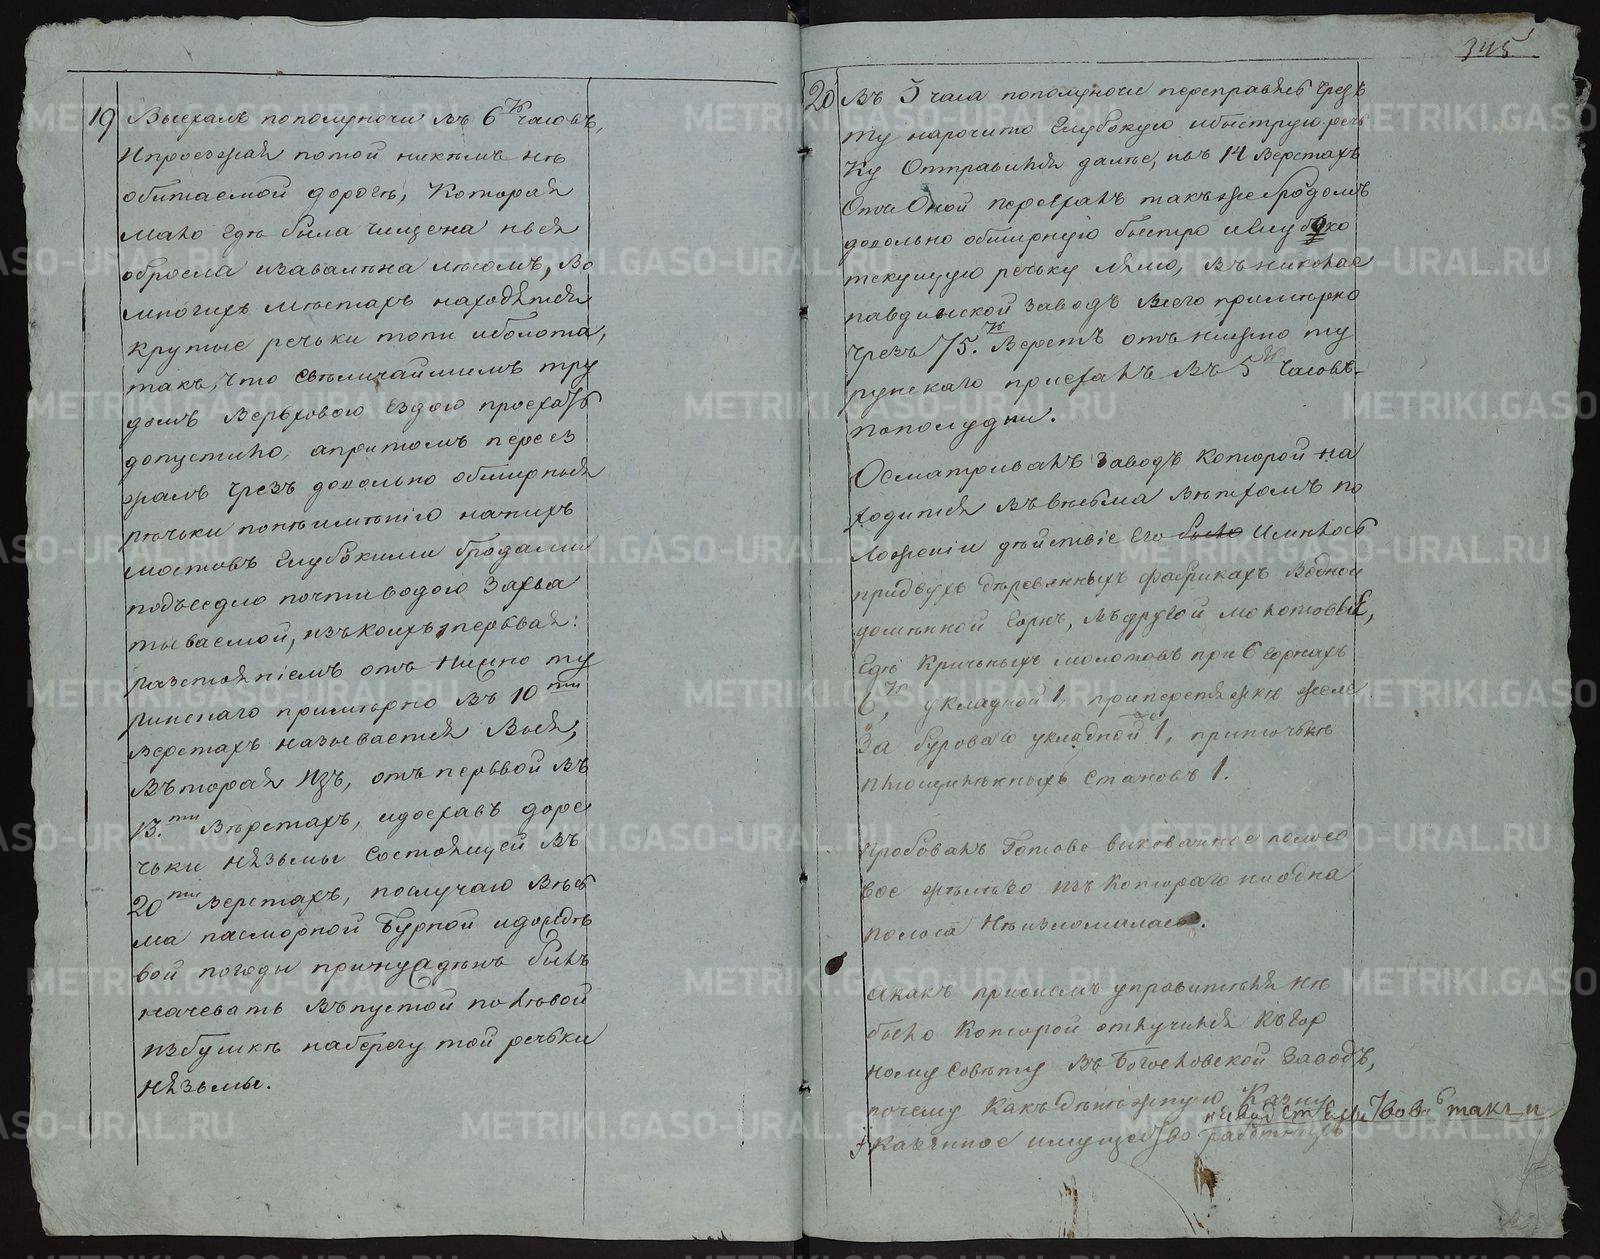 19 Выехалъ пополуночи въ 6ть часовъ,
И проезжая потой никемъ не
обитаемой дороге, Которая
мало где была чищена н вся
обросла и завалена лесомъ, во
многихъ местахъ находятся
крутые речьки топи и болота,
такъ, что свеличайшимъ тру
домъ верьховою ездою проехать
допустило, апритомъ переез
жалъ чрезъ довольно обширныя
речьки понеимению наних
мостовъ глубокими бродами
подъседло почти водою захва
тываемой, изъ коихъ первая:
разстояниемъ отъ нижно ту
ринскаго примерно въ 10ти
верстахъ называется Выя,
вторая Изъ, отъ первой въ
13ти верстахъ, и доехавъ до ре
чьки нязьмы состоящей въ
20ти верстахъ, послучаю весь
ма пасморной бурной и дожде
вой погоды принужденъ былъ
начевать въ пустой полевой
избушке наберегу той речьки
нязьмы.
345
20 Въ 5 часа пополуночи переправясь чрезъ
ту нарочито глубокую и быструю речь
ку Отправился далее, и въ 14 верстахъ
Отъ Оной переехалъ такъже бродомъ
довольно обширную быстро и глубоко
текущую речьку лялю, въ николае
павдинской заводъ всего примерно
чрезъ 75ть верстъ отъ нижно ту
ринскаго приехалъ въ 5ть часовъ
пополудни.
Осматривалъ заводъ которой на
ходится въ весьма ветхомъ по
ложении действие его было Имелось
придвухъ деревянныхъ фабрикахъ в одной
доменной горнъ, въ другой молотовые,
где кричныхъ молотовъ при 6 горнахъ
6ть, укладной 1, приперетяжке желе
за буроваго укладной 1, приточке
плющильныхъ становъ 1.
пробовалъ Готово выкованное полосо
вое железо изъ котораго ни одна
полоса неизломалась.
акакъ приономъ управителя не
было которой отлучился къ гор
ному совету въ Богословской заводъ,
почему какъ денежную казну
казенное имущество